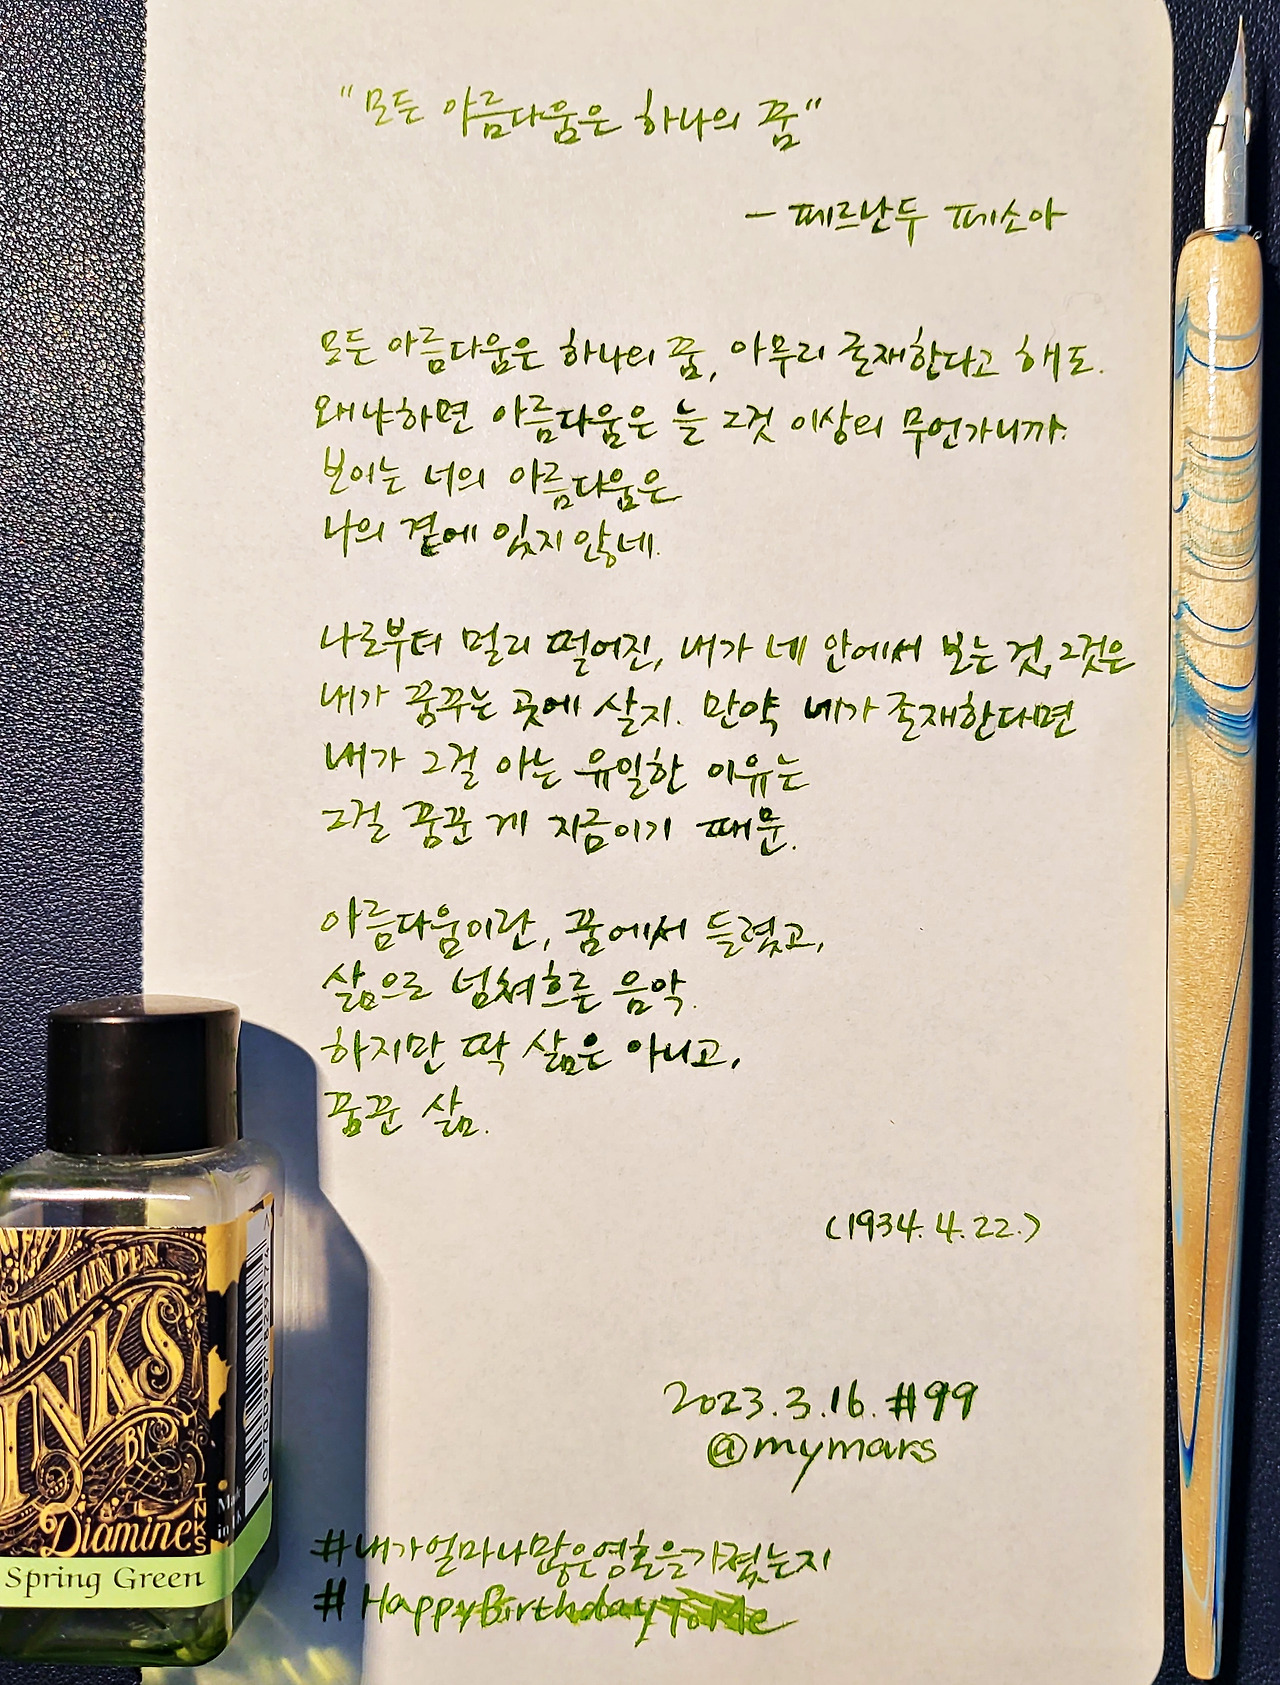 "모든 아름다움은 하나의 꿈"
- 페르난두 페소아
모든 아름다움은 하나의 꿈, 아무리 존재한다고 해도.
왜냐하면 아름다움은 늘 그것 이상의 무언가니까.
보이는 너의 아름다움은
나의 곁에 있지 않네.
나로부터 멀리 떨어진, 내가 네 안에서 보는 것, 그것은
내가 꿈꾸는 곳에 살지. 만약 네가 존재한다면
내가 그걸 아는 유일한 이유는
그걸 꿈꾼 게 지금이기 때문.
아름다움이란, 꿈에서 들렸고,
삶으로 넘쳐흐른 음악.
하지만 딱 삶은 아니고,
꿈꾼 삶.
(1934.4.22.)
2023.3.16. #99
@mymars
#내가얼마나많은영혼을가졌는지
#HappyBirthdayToMe
FOUNTAIN PEN
INKS
BY
Diamine
INKS
Spring Green